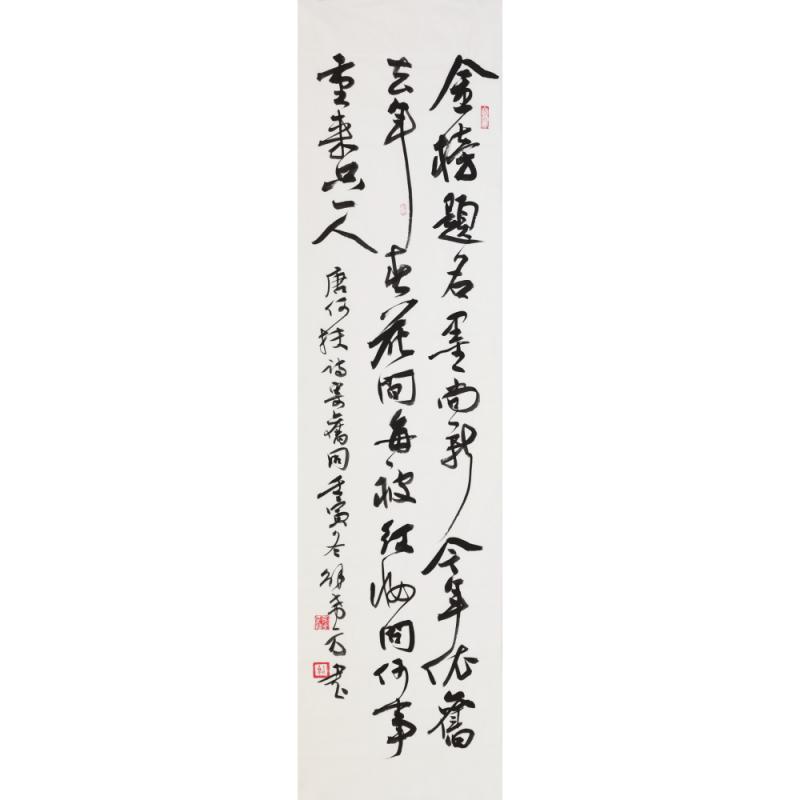 金榜題名墨尚新今年依舊
去年春花間每被紅妝問何事
重来只一人
唐何扶诗寄舊同壬寅冬书